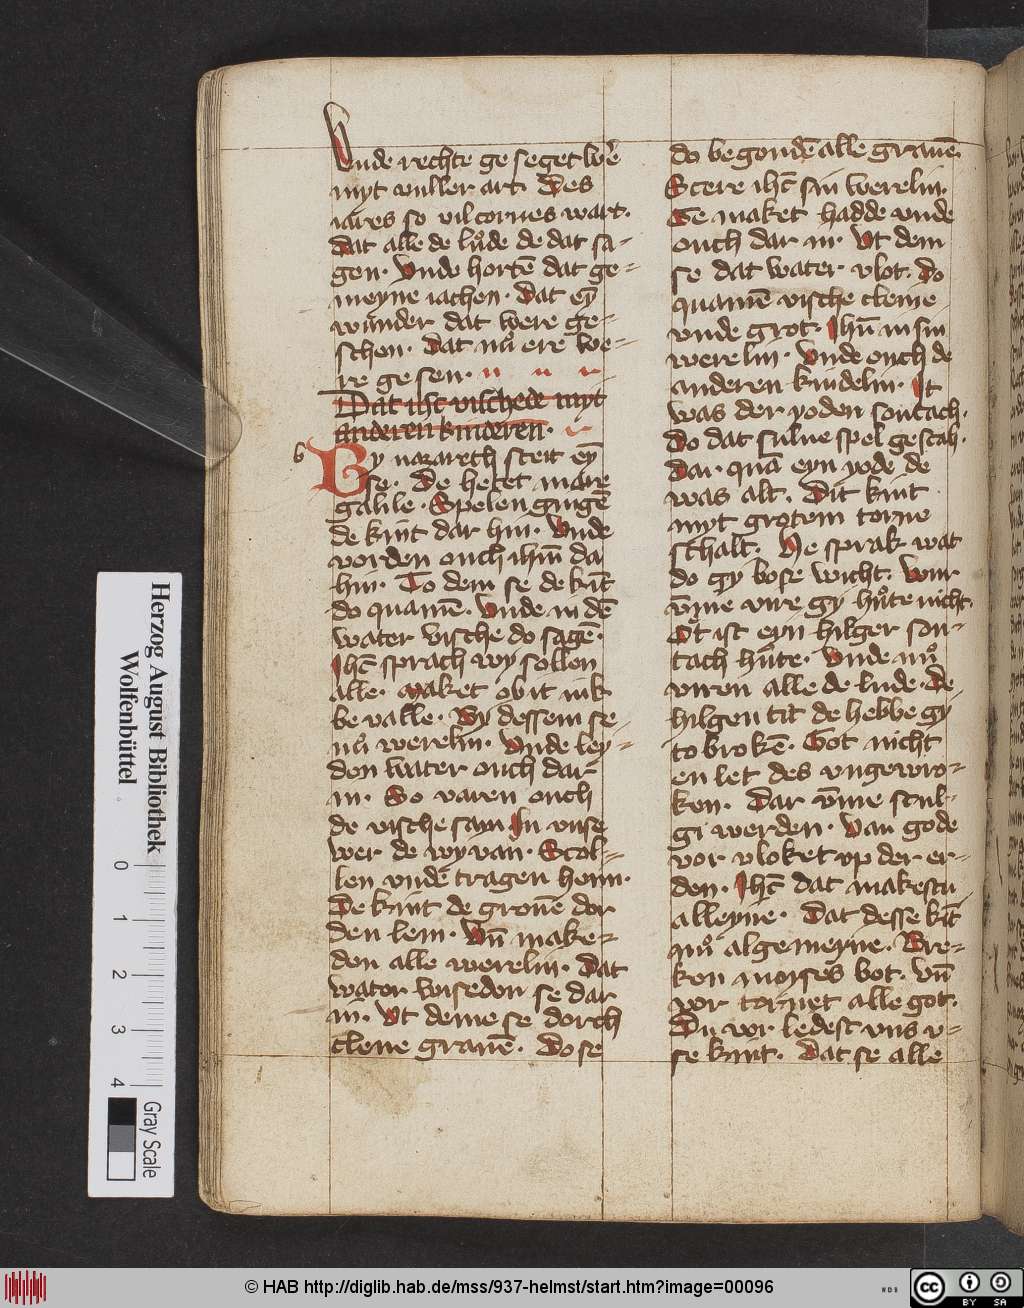 Vnde rechte ge seget wer̄
myt vuller art. Des
iares so vil cornes wart.
Dat alle de lůde de dat sa-
gen. Vnde hortē dat ge-
meyne iachen. Dat eȳ
wunder dat were ge-
schen. Dat nů ere we-
re ge sen.
Dat ihc vischede myt
anderen kinderen.
b
By nazareth steit eȳ
se. De hetet mare
galile. Spelen gingē
de kint dar hin. Vnde
vorden ouch ihm̄ da
hin. To dem se de kīt
do quamē. Vnde in dē
water vische do sagē.
Ihc̄ sprach wy sollen
alle. maket ob it iuk
be valle. By dessem se
nů werelin. Vnde ley-
den water ouch dar
in. So varen ouch
de vische sam In vnse
wer de wy van. Scol-
len vnde tragen heim.
De kint de grouē dor
den lem. Vn̄ make-
den alle werelin. Dat
water wiseden se dar
in. Vt deme se dorch
clene grauē. Do se
do begondē alle grauē.
Scere ihc̄ sin werelin.
Ge maket hadde vnde
ouch dar in. Vt dem
se dat water vlot. Do
quamē vische cleine
vnde grot. Ihm̄ in sin
werelin. Vnde ouch de
anderen kindelin. It
was der yoden sontach.
Do dat sulue spel gescah.
Dar. quā eyn yode de
was alt. Dit kint
myt grotem torne
schalt. He sprak wat
do gy bose wicht. War
v̄me vire gy hůte nicht.
Dt ist eyn hilger son-
tach hůte. Vnde nů
viren alle de lude. De
hilgen tit de hebbe gy
to brokē. Got nicht
en let des vngewro-
ken. Dar v̄me scul-
gi werden. Van gode
vor vloket vp der er-
den. Ihc̄ dat makestu
alleyne. Dat desse kīt
nů algemeyne. Bre-
ken moyses bot. Vn̄
vor tornet alle got.
Du vor ledest vns v-
se kint. Dat se alle
Herzog August Bibliothek
Wolfenbüttel
0 1 2 3 4
Gray Scale
© HAB http://diglib.hab.de/mss/937-helmst/start.htm?image=00096
WDB
cc
BY SA